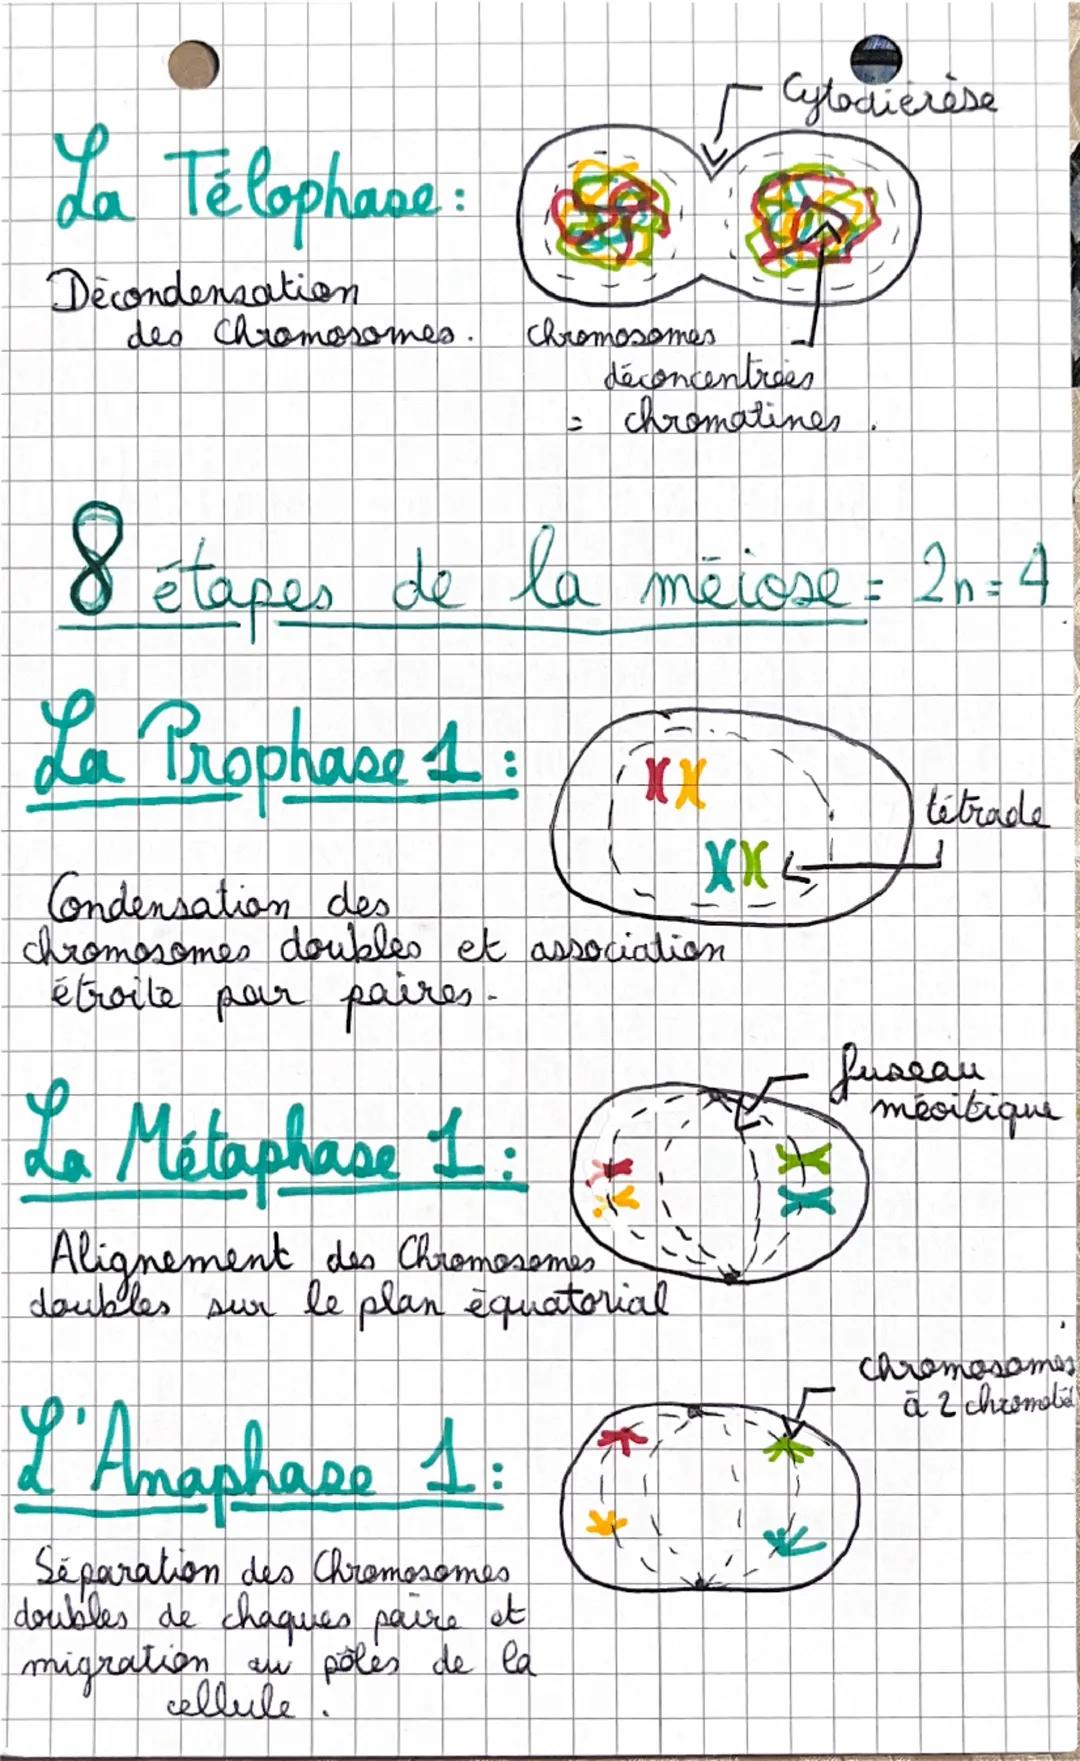 Cytodiérèse
La Télophase:
Décondensation
des Chromosomes.
chromosomes
déconcentrées
= chromatines.
8 étapes de la méiose = 2n=4
La Prophase 1:
tétrade
Condensation des
chromosomes doubles et association
étroite par paires.
fuseau
méoitique
La Métaphase 1:
Alignement des Chromosomes
doubles sur le plan équatorial
chromosomes
à 2 chromatid
L'Anaphase 1:
Séparation des Chromosomes
doubles de chaques paire et
migration au pôles de la
cellule.